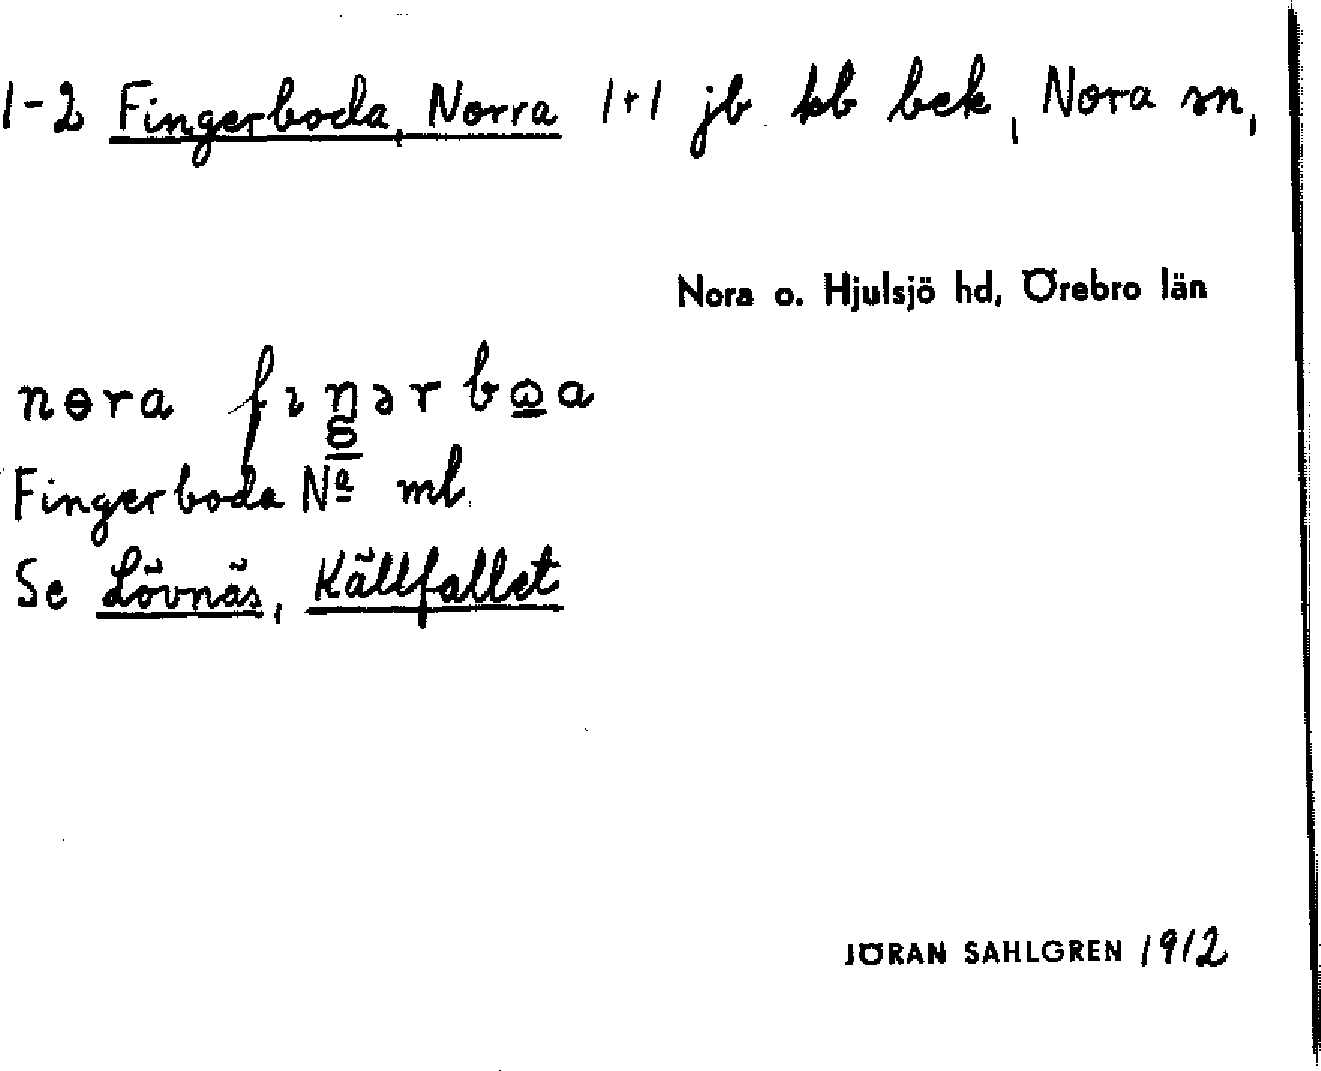 1-2 Fingerboda, Norra 1+1 jb kb bek, Nora sn,
Nora o. Hjulsjö hd, Örebro län
nɵra
Fingerboda Nª ml
Se Lövnäs, Källfallet
JÖRAN SAHLGREN 1912